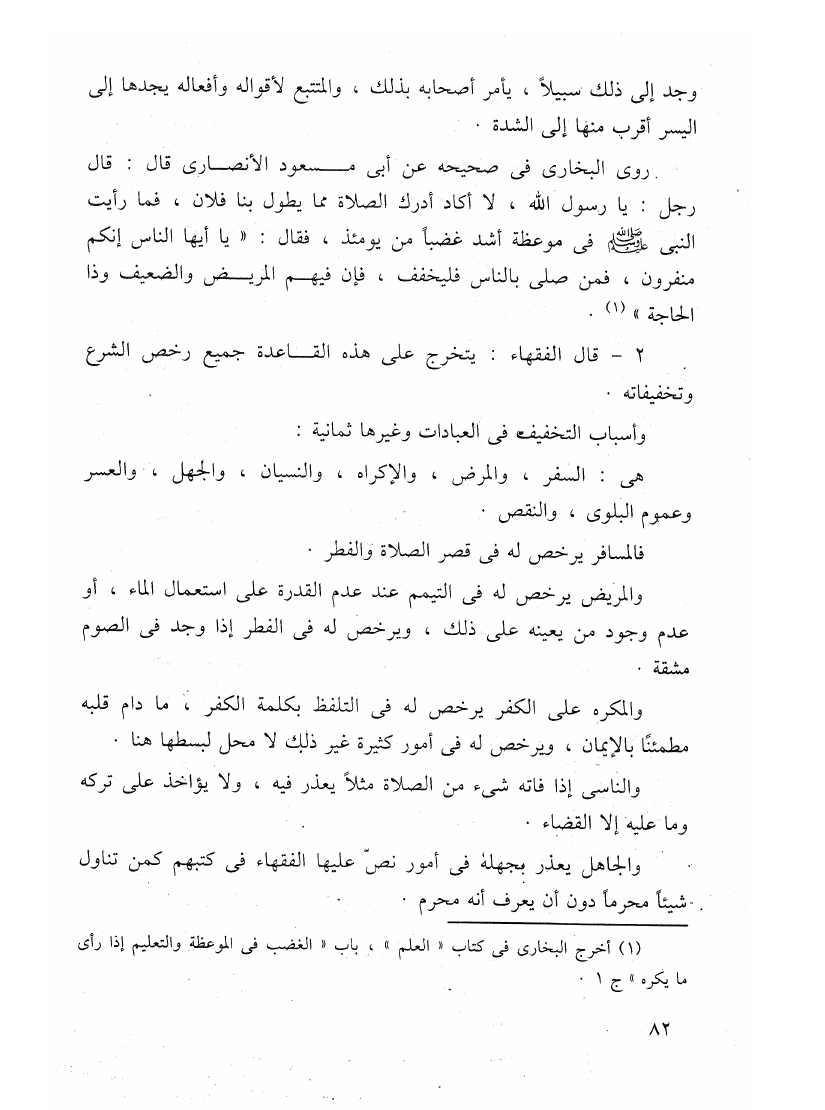 وجد إلى ذلك سبيلاً ، يأمر أصحابه بذلك ، والمتتبع لأقواله وأفعاله يجدها إلى
اليسر أقرب منها إلى الشدة .
روى البخارى فى صحيحه عن أبى مسعود الأنصارى قال : قال
رجل : يا رسول الله ، لا أكاد أدرك الصلاة مما يطول بنا فلان ، فما رأيت
النبى ﷺ فى موعظة أشد غضباً من يومئذ ، فقال : « يا أيها الناس إنكم
منفرون ، فمن صلى بالناس فليخفف ، فإن فيهم المريض والضعيف وذا
الحاجة » (١) .
٢ - قال الفقهاء : يتخرج على هذه القاعدة جميع رخص الشرع
وتخفيفاته .
وأسباب التخفيف فى العبادات وغيرها ثمانية :
هى : السفر ، والمرض ، والإكراه ، والنسيان ، والجهل ، والعسر
وعموم البلوى ، والنقص .
فالمسافر يرخص له فى قصر الصلاة والفطر .
والمريض يرخص له فى التيمم عند عدم القدرة على استعمال الماء ، أو
عدم وجود من يعينه على ذلك ، ويرخص له فى الفطر إذا وجد فى الصوم
مشقة .
والمكره على الكفر يرخص له فى التلفظ بكلمة الكفر ، ما دام قلبه
مطمئنًا بالإيمان ، ويرخص له فى أمور كثيرة غير ذلك لا محل لبسطها هنا .
والناسى إذا فاته شىء من الصلاة مثلاً يعذر فيه ، ولا يؤاخذ على تركه
وما عليه إلا القضاء .
والجاهل يعذر بجهله فى أمور نصّ عليها الفقهاء فى كتبهم كمن تناول
شيئاً محرماً دون أن يعرف أنه محرم .
(١) أخرج البخارى فى كتاب « العلم » ، باب « الغضب فى الموعظة والتعليم إذا رأى
ما يكره » ج ١ .
٨٢